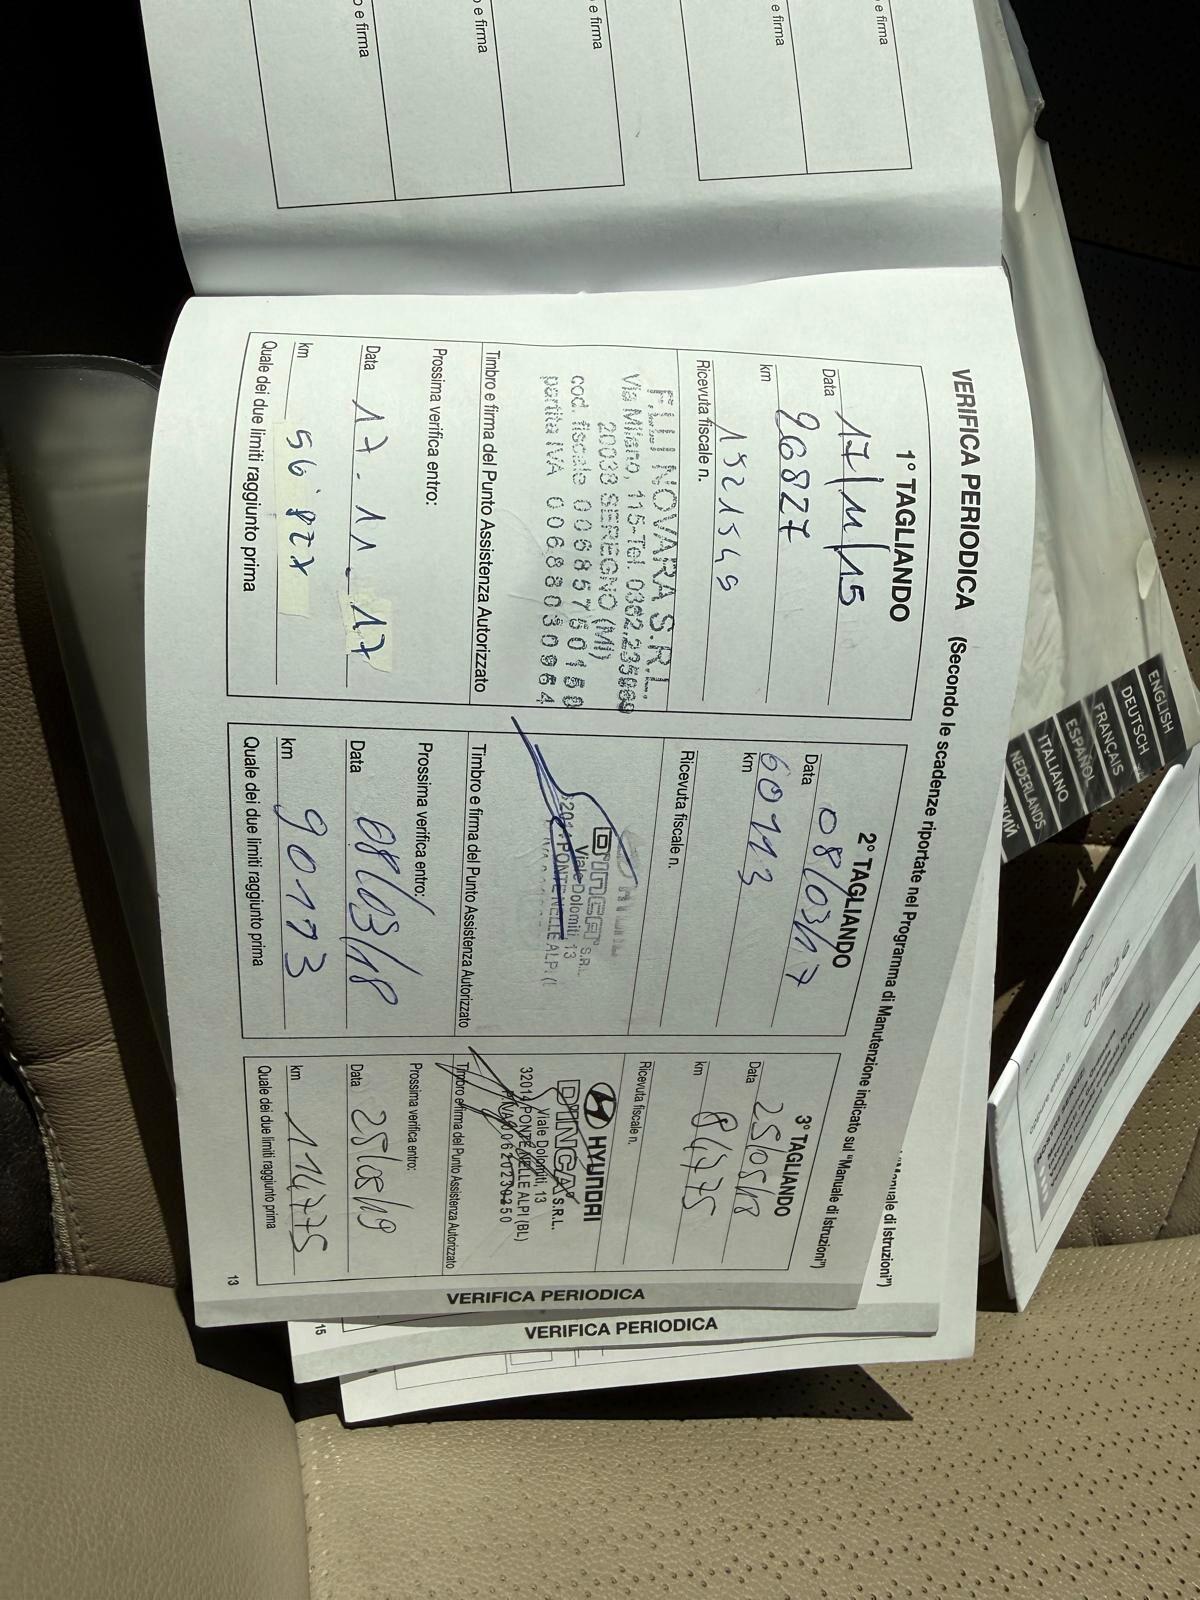 e firma
e firma
e firma
e firma
e firma
VERIFICA PERIODICA (Secondo le scadenze riportate nel Programma di Manutenzione indicato sul "Manuale di Istruzioni")
1° TAGLIANDO
Data 17/11/15
km 26827
Ricevuta fiscale n. 152154
F.LLI NOVARA S.R.L.
Via Milano, 115-Tel. 0362.235069
20038 SEREGNO (MI)
cod. fiscale 00685750150
partita IVA 00688030964
Timbro e firma del Punto Assistenza Autorizzato
Prossima verifica entro:
Data 17-11-17
km 56'827
Quale dei due limiti raggiunto prima
2° TAGLIANDO
Data 08/03/17
km 60113
Ricevuta fiscale n.
DINCA S.R.L.
Viale Dolomiti, 13
PONTE NELLE ALPI
Timbro e firma del Punto Assistenza Autorizzato
Prossima verifica entro:
Data 08/03/18
km 90113
Quale dei due limiti raggiunto prima
3° TAGLIANDO
Data 25/05/18
km 81475
Ricevuta fiscale n.
HYUNDAI
DINCA S.R.L.
Viale Dolomiti, 13
32014 PONTE NELLE ALPI (BL)
Timbro e firma del Punto Assistenza Autorizzato
Prossima verifica entro:
Data 25/05/19
km 111475
Quale dei due limiti raggiunto prima
13
VERIFICA PERIODICA
"Manuale di Istruzioni")
15
VERIFICA PERIODICA
ENGLISH
DEUTSCH
FRANÇAIS
ESPAÑOL
ITALIANO
NEDERLANDS
07/2026